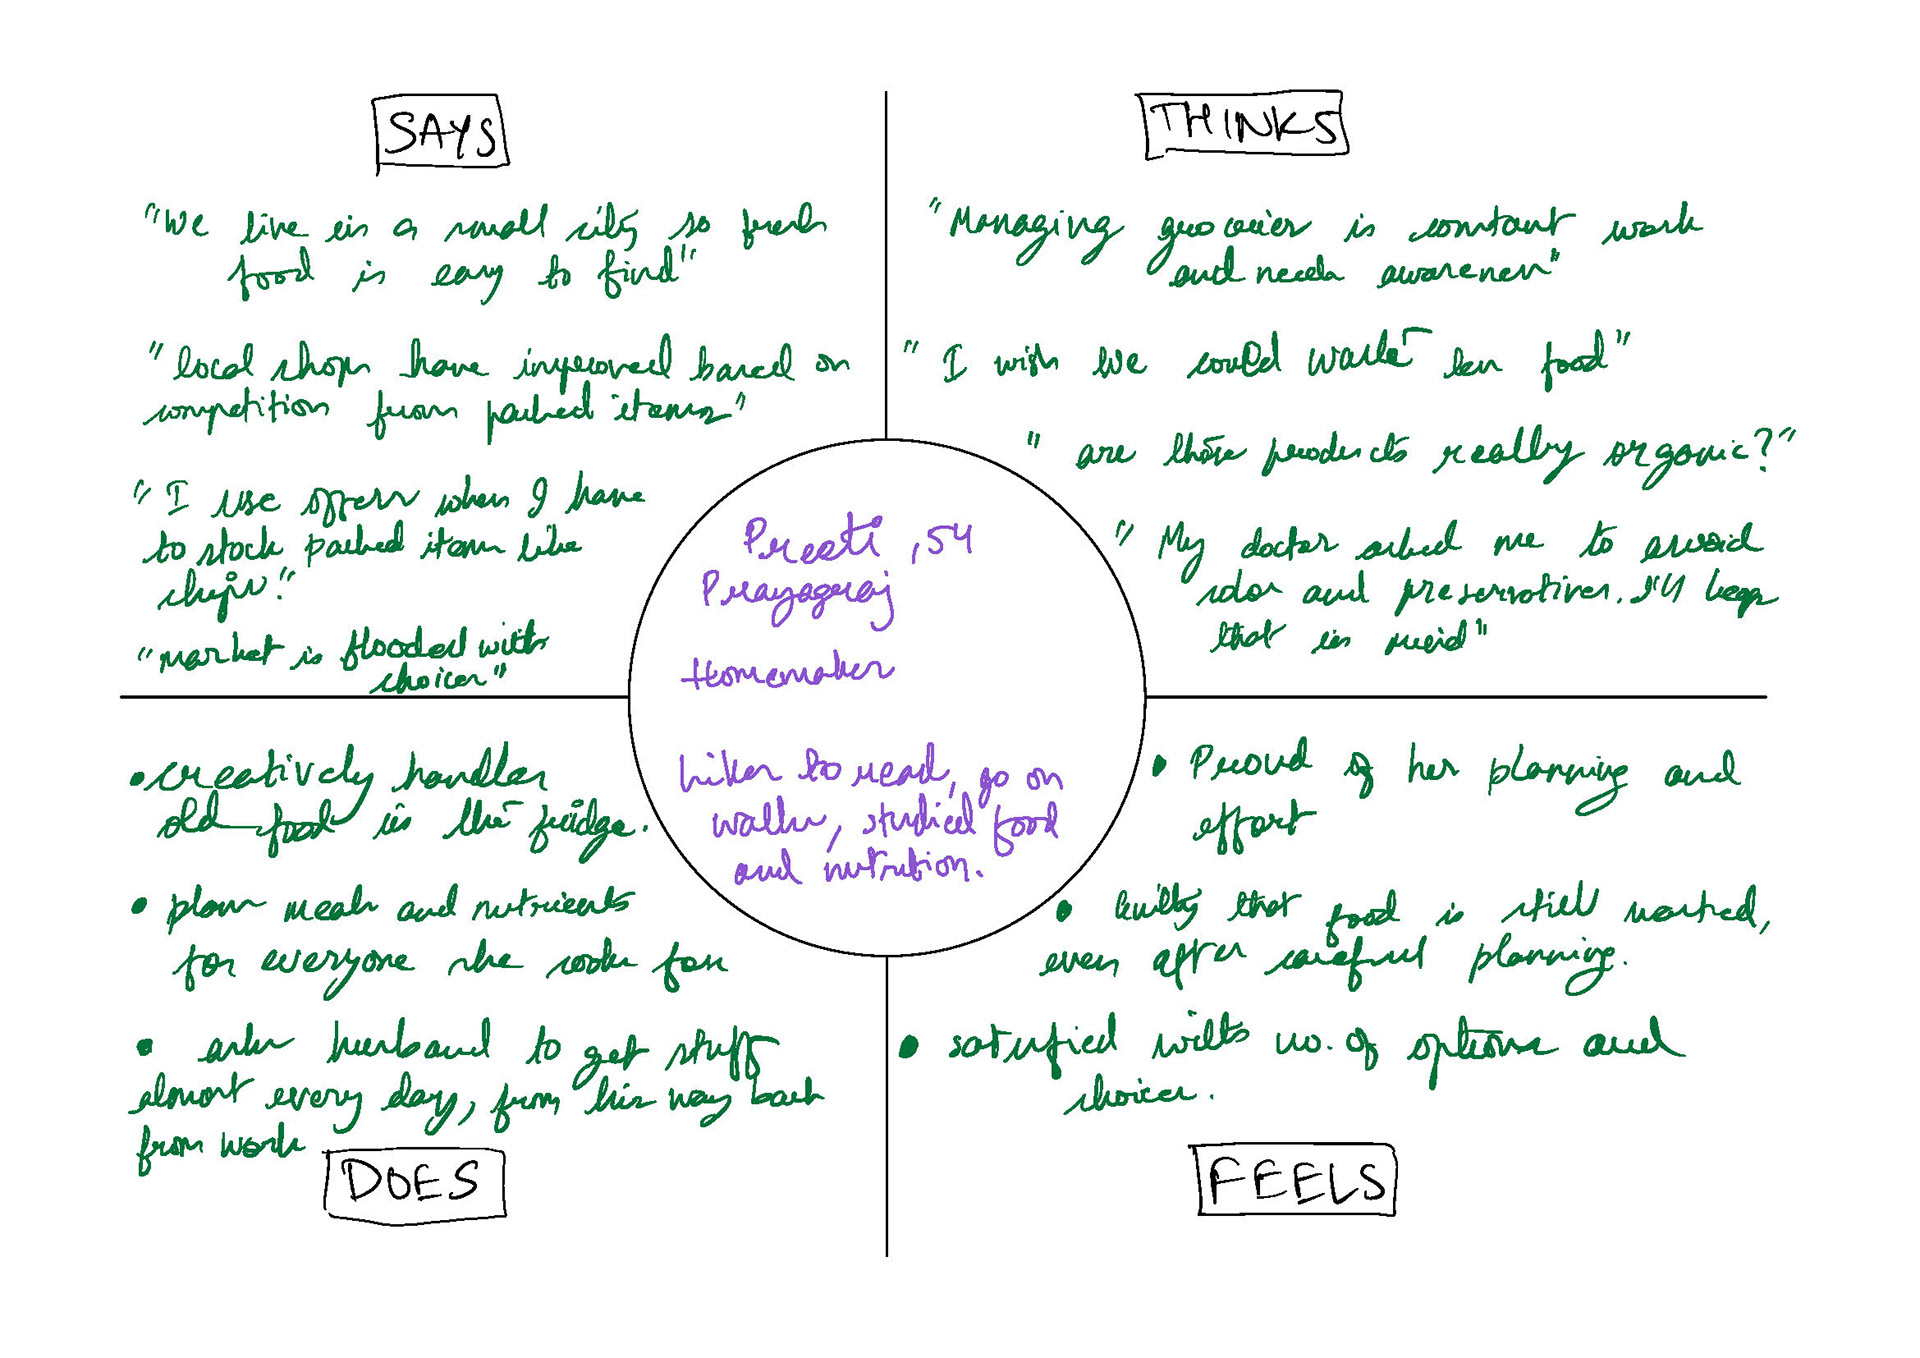 SAYS
"We live in a small city so fresh
food is easy to find"
"local shops have improved based on
competition from packed items"
"I use offers when I have
to stock packed items like
chips."
"market is flooded with
choices"
THINKS
"Managing groceries is constant work
and needs awareness"
"I wish we could waste less food"
"are these products really organic?"
"My doctor asked me to avoid
color and preservatives. I'll keep
that in mind"
Preeti, 54
Prayagraj
Homemaker
Likes to read, go on
walks, studied food
and nutrition.
• creatively handles
old food in the fridge.
• plans meals and nutrients
for everyone she cooks for
• asks husband to get stuff
almost every day, from his way back
from work
DOES
• Proud of her planning and
effort
• Guilty that food is still wasted,
even after careful planning.
• satisfied with no. of options and
choices.
FEELS